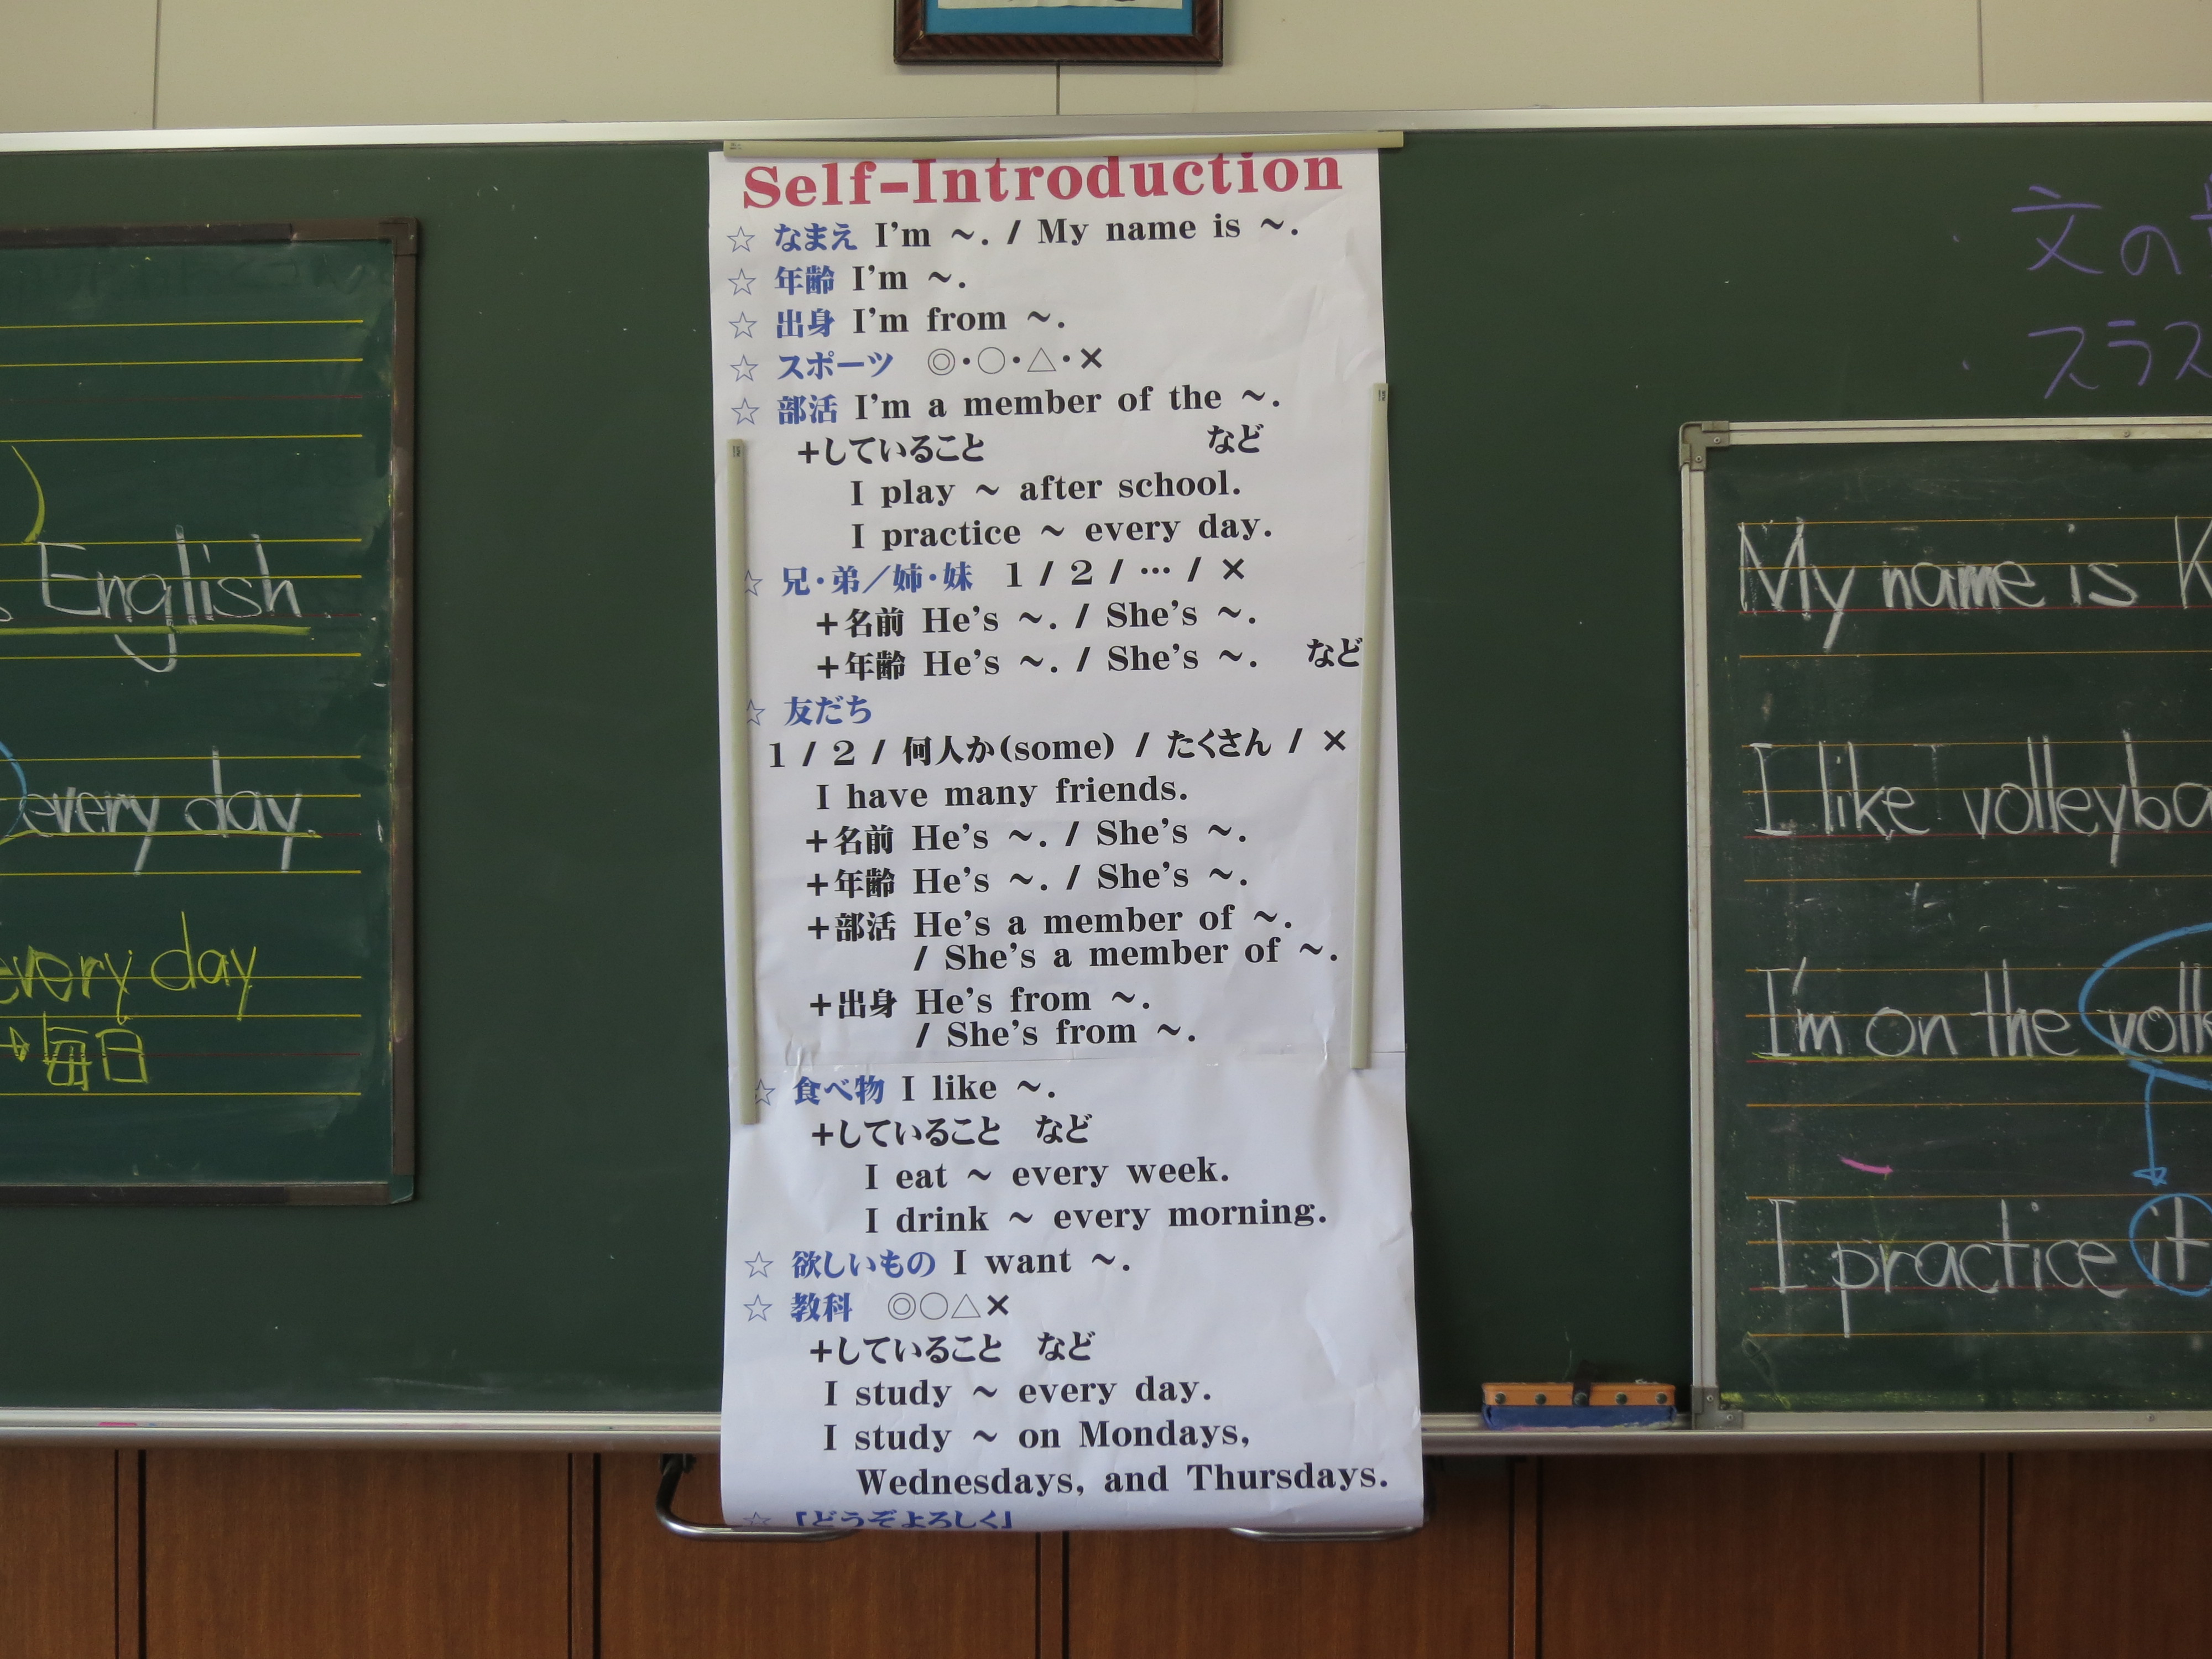 English.
every day.
every day
→毎日
Self-Introduction
☆ なまえ I'm ～. / My name is ～.
☆ 年齢 I'm ～.
☆ 出身 I'm from ～.
☆ スポーツ ◎・○・△・×
☆ 部活 I'm a member of the ～.
+していること など
I play ～ after school.
I practice ～ every day.
☆ 兄・弟／姉・妹 1 / 2 / … / ×
+名前 He's ～. / She's ～.
+年齢 He's ～. / She's ～. など
☆ 友だち
1 / 2 / 何人か(some) / たくさん / ×
I have many friends.
+名前 He's ～. / She's ～.
+年齢 He's ～. / She's ～.
+部活 He's a member of ～.
/ She's a member of ～.
+出身 He's from ～.
/ She's from ～.
☆ 食べ物 I like ～.
+していること など
I eat ～ every week.
I drink ～ every morning.
☆ 欲しいもの I want ～.
☆ 教科 ◎○△×
+していること など
I study ～ every day.
I study ～ on Mondays,
Wednesdays, and Thursdays.
☆ 「どうぞよろしく」
・文の
・スラス
My name is K
I like volleyba
I'm on the voll
I practice it